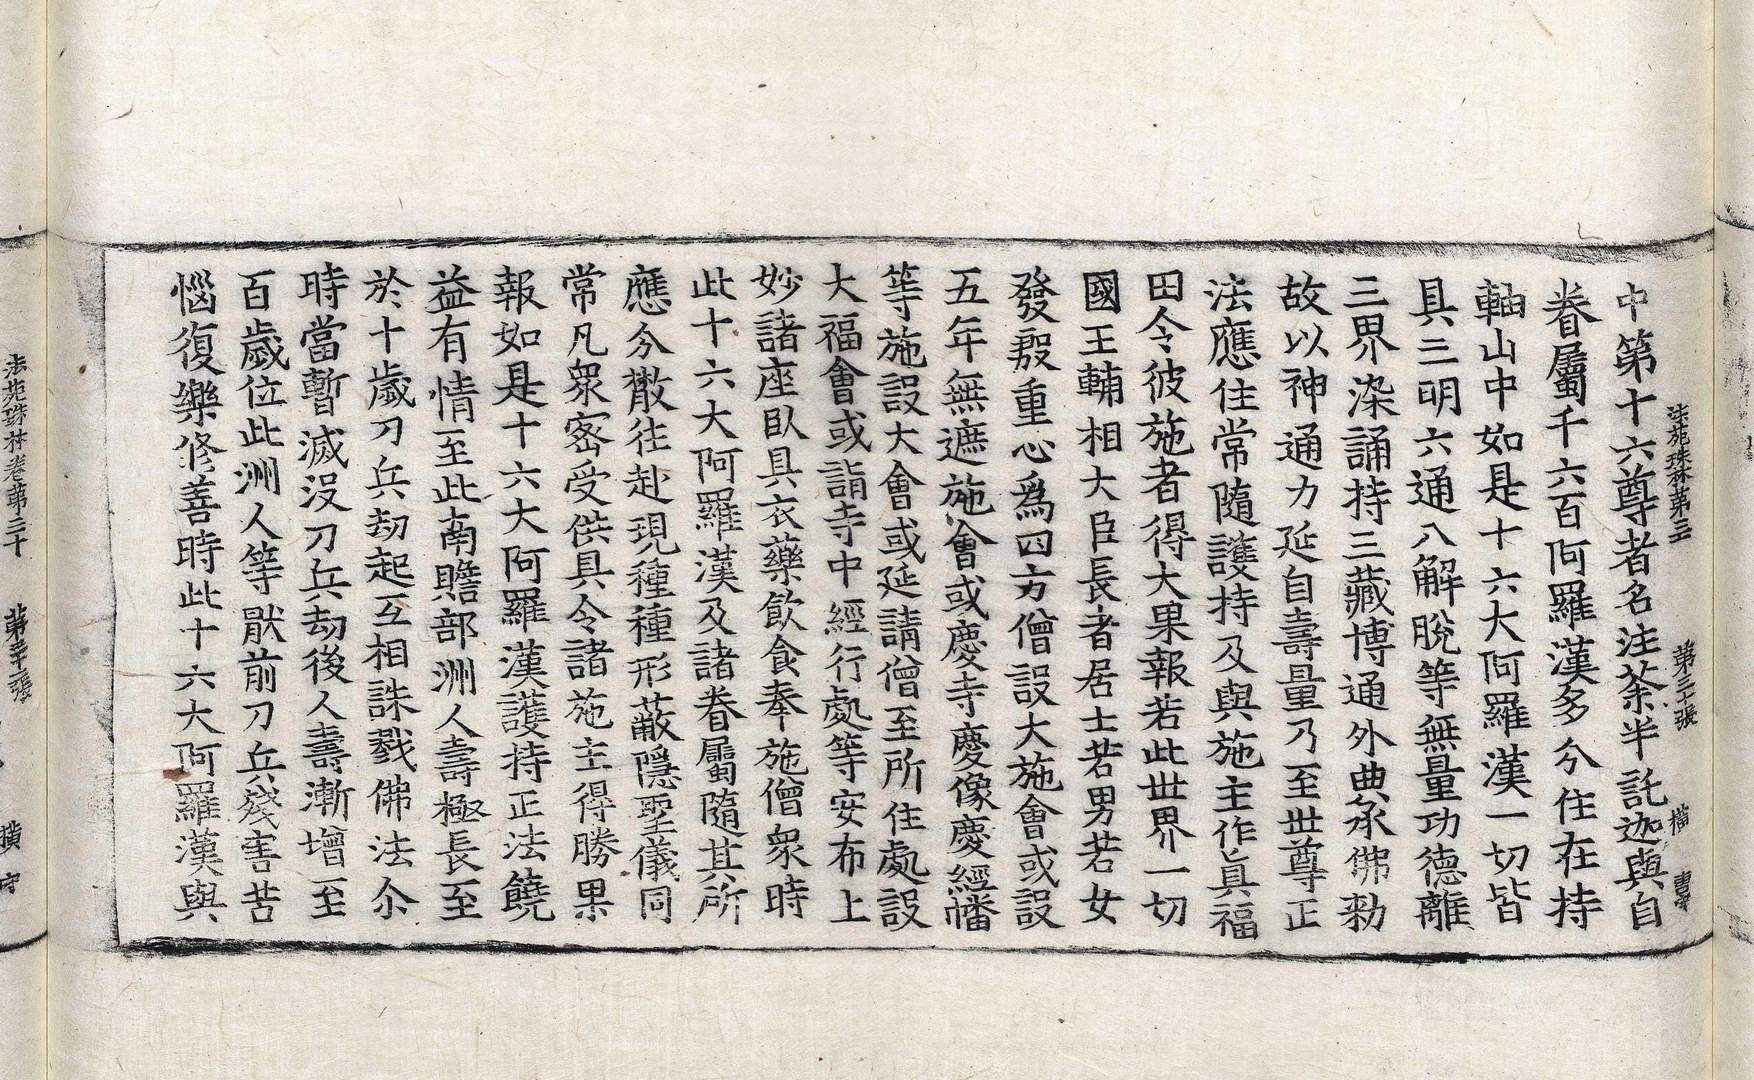 法苑珠林第三 第三十張 橫
中第十六尊者名注荼半託迦與自
眷屬千六百阿羅漢多分住在持
軸山中如是十六大阿羅漢一切皆
具三明六通八解脫等無量功德離
三界染誦持三藏博通外典承佛勑
故以神通力延自壽量乃至世尊正
法應住常隨護持及與施主作真福
田令彼施者得大果報若此世界一切
國王輔相大臣長者居士若男若女
發殷重心為四方僧設大施會或設
五年無遮施會或慶寺慶像慶經幡
等施設大會或延請僧至所住處設
大福會或詣寺中經行處等安布上
妙諸座臥具衣藥飲食奉施僧眾時
此十六大阿羅漢及諸眷屬隨其所
應分散往赴現種種形蔽隱聖儀同
常凡眾密受供具令諸施主得勝果
報如是十六大阿羅漢護持正法饒
益有情至此南贍部洲人壽極長至
於十歲刀兵劫起互相誅戮佛法尒
時當暫滅沒刀兵劫後人壽漸增至
百歲位此洲人等猒前刀兵殘害苦
惱復樂修善時此十六大阿羅漢與
法苑珠林卷第三十 橫 守